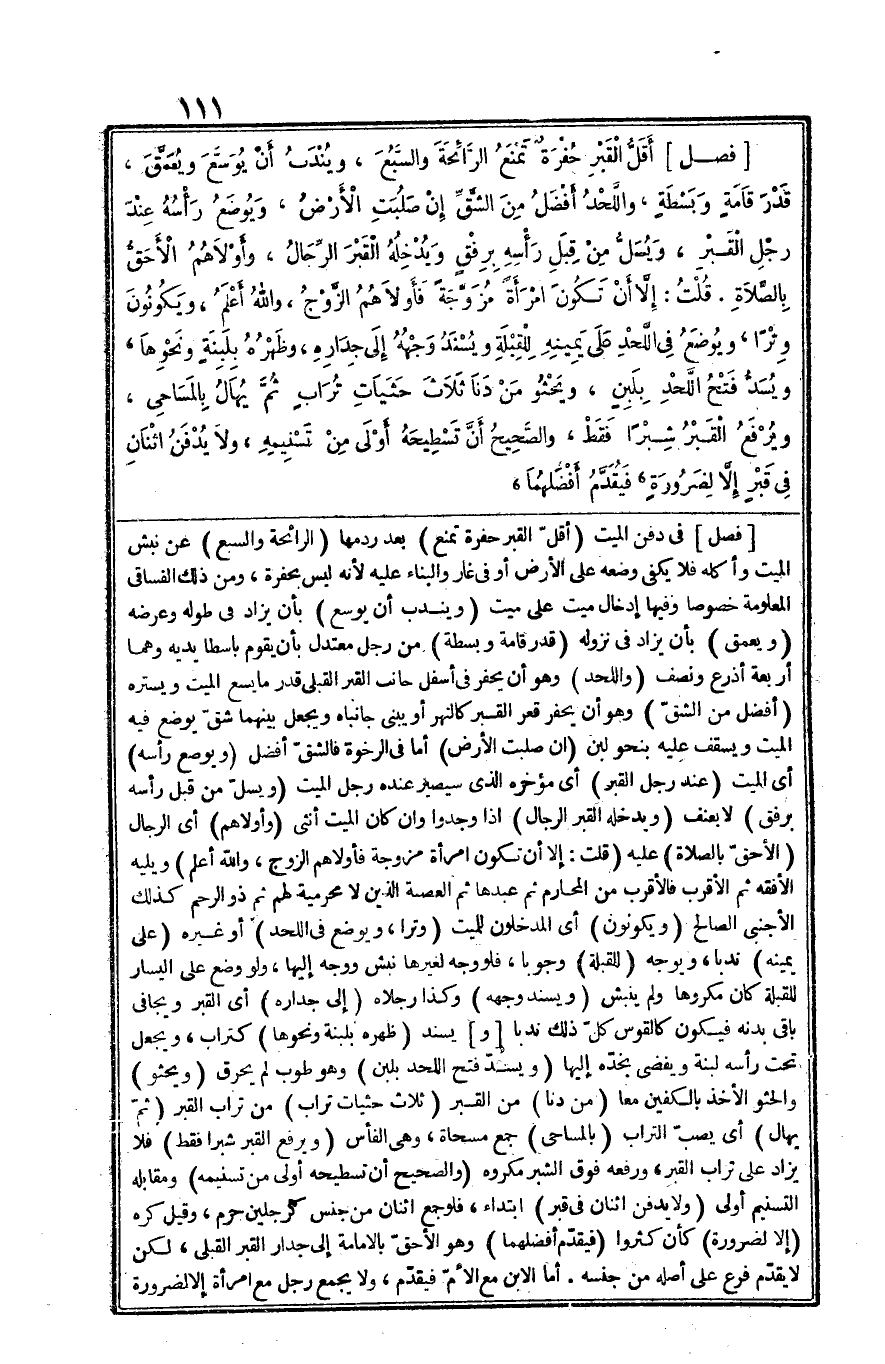 ١١١
[ فصل ] أَقَلُّ الْقَبْرِ حُفْرَةٌ تَمْنَعُ الرَّائِحَةَ والسَّبُعَ ، ويُنْدَبُ أَنْ يُوَسَّعَ ويُعَمَّقَ ،
قَدْرَ قَامَةٍ وَبَسْطَةٍ ، واللَّحْدُ أَفْضَلُ مِنَ الشَّقِّ إِنْ صَلُبَتِ الْأَرْضُ ، وَيُوضَعُ رَأْسُهُ عِنْدَ
رِجْلِ الْقَبْرِ ، وَيُسَلُّ مِنْ قِبَلِ رَأْسِهِ بِرِفْقٍ وَيُدْخِلُهُ الْقَبْرَ الرِّجَالُ ، وأَوْلَاهُمُ الْأَحَقُّ
بِالصَّلَاةِ . قُلْتُ : إِلَّا أَنْ تَكُونَ امْرَأَةً مُزَوَّجَةً فَأَوْلَاهُمُ الزَّوْجُ ، واللهُ أَعْلَمُ ، ويَكُونُونَ
وِتْرًا ، ويُوضَعُ فِى اللَّحْدِ عَلَى يَمِينِهِ لِلْقِبْلَةِ ويُسْنَدُ وَجْهُهُ إِلَى جِدَارِهِ ، وظَهْرُهُ بِلَبِنَةٍ ونَحْوِهَا ،
ويُسَدُّ فَتْحُ اللَّحْدِ بِلَبِنٍ ، ويَحْثُو مَنْ دَنَا ثَلَاثَ حَثَيَاتِ تُرَابٍ ثُمَّ يُهَالُ بِالْمَسَاحِى ،
ويُرْفَعُ الْقَبْرُ شِبْرًا فَقَطْ ، والصَّحِيحُ أَنَّ تَسْطِيحَهُ أَوْلَى مِنْ تَسْنِيمِهِ ، ولَا يُدْفَنُ اثْنَانِ
فِى قَبْرٍ إِلَّا لِضَرُورَةٍ ، فَيُقَدَّمُ أَفْضَلُهُمَا ،
[ فصل ] فى دفن الميت ( أقلّ القبر حفرة تمنع ) بعد ردمها ( الرائحة والسبع ) عن نبش
الميت وأكله فلا يكفى وضعه على الأرض أو فى غار والبناء عليه لأنه ليس بحفرة ، ومن ذلك الفساقى
المعلومة خصوصا وفيها إدخال ميت على ميت ( ويندب أن يوسع ) بأن يزاد فى طوله وعرضه
( ويعمق ) بأن يزاد فى نزوله ( قدر قامة وبسطة ) من رجل معتدل بأن يقوم باسطا يديه وهما
أربعة أذرع ونصف ( واللحد ) وهو أن يحفر فى أسفل جانب القبر القبلى قدر ما يسع الميت ويستره
( أفضل من الشقّ ) وهو أن يحفر قعر القبر كالنهر أو يبنى جانباه ويجعل بينهما شقّ يوضع فيه
الميت ويسقف عليه بنحو لبن ( ان صلبت الأرض ) أما فى الرخوة فالشقّ أفضل ( ويوضع رأسه )
أى الميت ( عند رجل القبر ) أى مؤخره الذى سيصير عنده رجل الميت ( ويسلّ من قبل رأسه
برفق ) لا بعنف ( ويدخله القبر الرجال ) اذا وجدوا وان كان الميت أنثى ( وأولاهم ) أى الرجال
( الأحقّ بالصلاة ) عليه ( قلت : إلا أن تكون امرأة مزوجة فأولاهم الزوج ، والله أعلم ) ويليه
الأفقه ثم الأقرب فالأقرب من المحارم ثم عبدها ثم العصبة الذين لا محرمية لهم ثم ذو الرحم كذلك
الأجنبى الصالح ( ويكونون ) أى المدخلون للميت ( وترا ، ويوضع فى اللحد ) أو غيره ( على
يمينه ) ندبا ، ويوجه ( للقبلة ) وجوبا ، فلو وجه لغيرها نبش ووجه إليها ، ولو وضع على اليسار
للقبلة كان مكروها ولم ينبش ( ويسند وجهه ) وكذا رجلاه ( إلى جداره ) أى القبر ويجافى
باقى بدنه فيكون كالقوس كلّ ذلك ندبا [ و ] يسند ( ظهره بلبنة ونحوها ) كتراب ، ويجعل
تحت رأسه لبنة ويفضى بخدّه إليها ( ويسدّ فتح اللحد بلبن ) وهو طوب لم يحرق ( ويحثو )
والحثو الأخذ بالكفين معا ( من دنا ) من القبر ( ثلاث حثيات تراب ) من تراب القبر ( ثمّ
يهال ) أى يصبّ التراب ( بالمساحى ) جمع مسحاة ، وهى الفأس ( ويرفع القبر شبرا فقط ) فلا
يزاد على تراب القبر ، ورفعه فوق الشبر مكروه ( والصحيح أن تسطيحه أولى من تسنيمه ) ومقابله
التسنيم أولى ( ولا يدفن اثنان فى قبر ) ابتداء ، فلو جمع اثنان من جنس كرجلين حرم ، وقيل كره
( إلا لضرورة ) كأن كثروا ( فيقدّم أفضلهما ) وهو الأحقّ بالامامة إلى جدار القبر القبلى ، لكن
لا يقدّم فرع على أصله من جنسه . أما الابن مع الأمّ فيقدّم ، ولا يجمع رجل مع امرأة إلا لضرورة